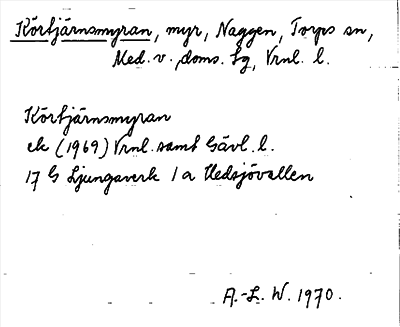 Körtjärnsmyran, myr, Naggen, Torps sn,
Med. v. doms. Lg, Vrnl. l.
Körtjärnsmyran
ek (1969) Vrnl. samt Gävl. l.
17 G Ljungaverk 1 a Hedsjövallen
A.-L. W. 1970.